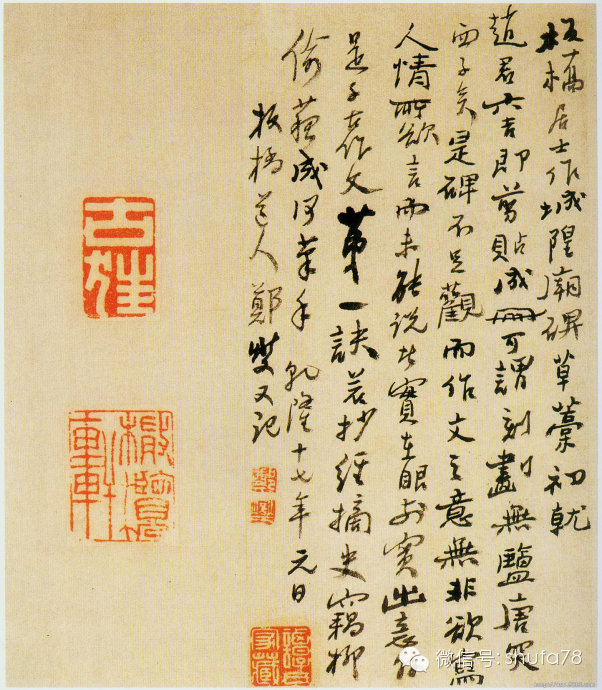 板橋居士作城隍廟碑草藁初就
趙君六吉即剪貼成冊可謂刻畫無鹽唐突
西子矣是碑不足觀而作文之意無非欲寫
人情所欲言而未能說處實在眼前實出意外
是千古作文第一訣若抄經摘史竊柳
偷蘇成何筆手乾隆十七年元日
板橋道人鄭燮又記
微信号: shufa78